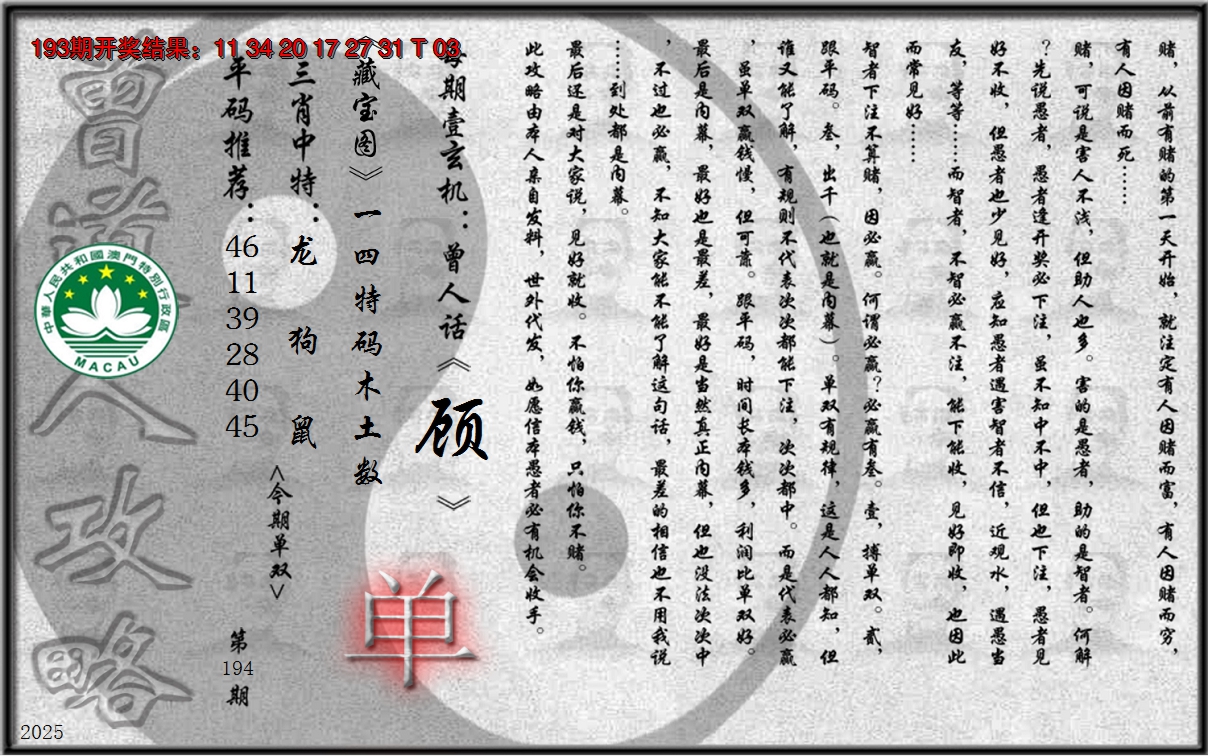 193期开奖结果：11 34 20 17 27 31 T 03
赌，从前有赌的第一天开始，就注定有人因赌而富，有人因赌而穷，
有人因赌而死……
赌，可说是害人不浅，但助人也多。害的是愚者，助的是智者。何解
？先说愚者，愚者逢开奖必下注，虽不知中不中，但也下注，愚者见
好不收，但愚者也少见好，应知愚者遇害智者不信，近观水，遇愚当
友，等等……而智者，不智必赢不注，能下能收，见好即收，也因此
而常见好……
智者下注不算赌，因必赢。何谓必赢？必赢有叁。壹，搏单双。贰，
跟平码。叁，出千（也就是内幕）。单双有规律，这是人人都知，但
谁又能了解，有规则不代表次次都能下注，次次都中。而是代表必赢
，虽单双赢钱慢，但可靠。跟平码，时间长本钱多，利润比单双好。
最后是内幕，最好也是最差，最好是当然真正内幕，但也没法次次中
，不过也必赢，不知大家能不能了解这句话，最差的相信也不用我说
……到处都是内幕。
最后还是对大家说，见好就收。不怕你赢钱，只怕你不赌。
此攻略由本人亲自发料，世外代发，如愿信本愚者必有机会收手。
每期壹玄机：曾人话《顾》
《藏宝图》一四特码木土数
单
三肖中特：龙 狗 鼠
<今期单双>
平码推荐：46 11 39 28 40 45
第194期
曾道人攻略
中華人民共和國澳門特別行政區
MACAU
2025